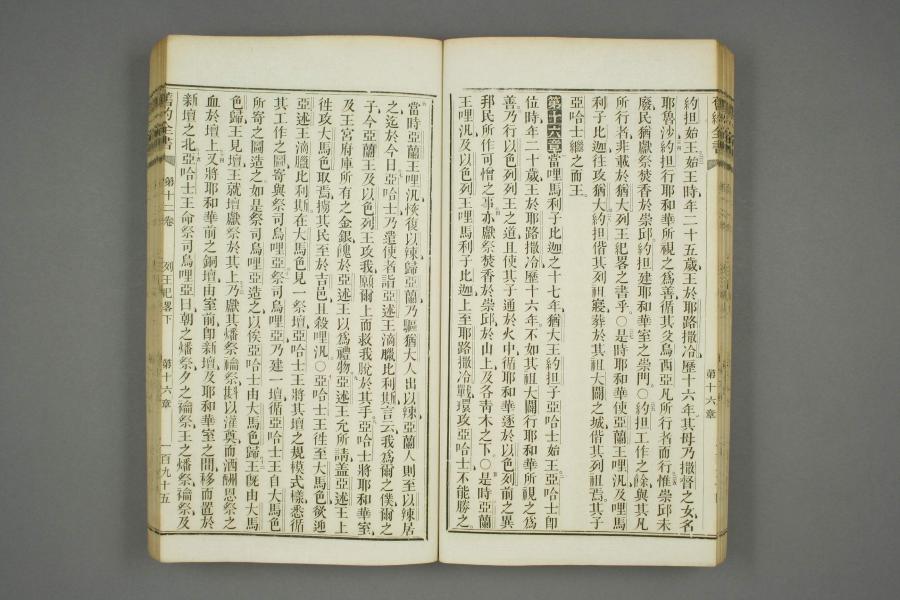 約担始王時年二十五歲王於耶路撒冷歷十六年其母乃撒督之女名
耶魯沙約担行耶和華所視之爲善循其父烏西亞凡所行者而行惟崇邱未
廢民猶獻祭焚香於崇邱約担建耶和華室之崇門○約担工作之餘與其凡
所行者非載於猶大列王紀畧之書乎○是時耶和華使亞蘭王哩汎及哩馬
利子比迦往攻猶大約担偕其列祖寢葬於其祖大闢之城偕其列祖焉其子
亞哈士繼之而王
第十六章當哩馬利子比迦之十七年猶大王約担子亞哈士始王亞哈士卽
位時年二十歲王於耶路撒冷歷十六年不如其祖大闢行耶和華所視之爲
善乃行以色列列王之道且使其子通於火中循耶和華逐於以色列前之異
邦民所作可憎之事亦獻祭焚香於崇邱於山上及各靑木之下○是時亞蘭
王哩汎及以色列王哩馬利子比迦上至耶路撒冷戰環攻亞哈士不能勝之
第十六章
當時亞蘭王哩汎恢復以辣歸亞蘭乃驅猶大人出以辣亞蘭人則至以辣居
之迄於今日亞哈士乃遣使者詣亞述王滴臘比利斯言云我爲爾之僕爾之
子今亞蘭王及以色列王攻我願爾上而救我脫於其手亞哈士將耶和華室
及王宮府庫所有之金銀餽於亞述王以爲禮物亞述王允所請蓋亞述王上
徃攻大馬色取焉擄其民至於吉邑且殺哩汎○亞哈士王徃至大馬色欲迎
亞述王滴臘比利斯在大馬色見一祭壇亞哈士王將其壇之規模式樣悉循
其工作之圖寄與祭司烏哩亞祭司烏哩亞乃建一壇循亞哈士王自大馬色
所寄之圖造之如是祭司烏哩亞造之以俟亞哈士由大馬色歸王旣由大馬
色歸王見壇王就壇獻祭於其上乃獻其燔祭禴祭斟以灌奠而洒酬恩祭之
血於壇上又將耶和華前之銅壇由室前卽新壇及耶和華室之間移而置於
新壇之北亞哈士王命祭司烏哩亞曰朝之燔祭夕之禴祭王之燔祭禴祭及
舊約全書
第十二卷
列王紀畧下
第十六章
一百九十五